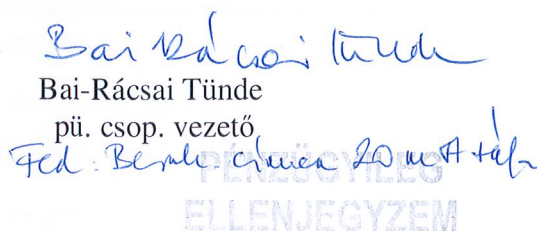 Bai Rácsai Tünde
Bai-Rácsai Tünde
pü. csop. vezető
Fed: Beruh. címen 20 m Ft
PÉNZÜGYILEG
ELLENJEGYZEM